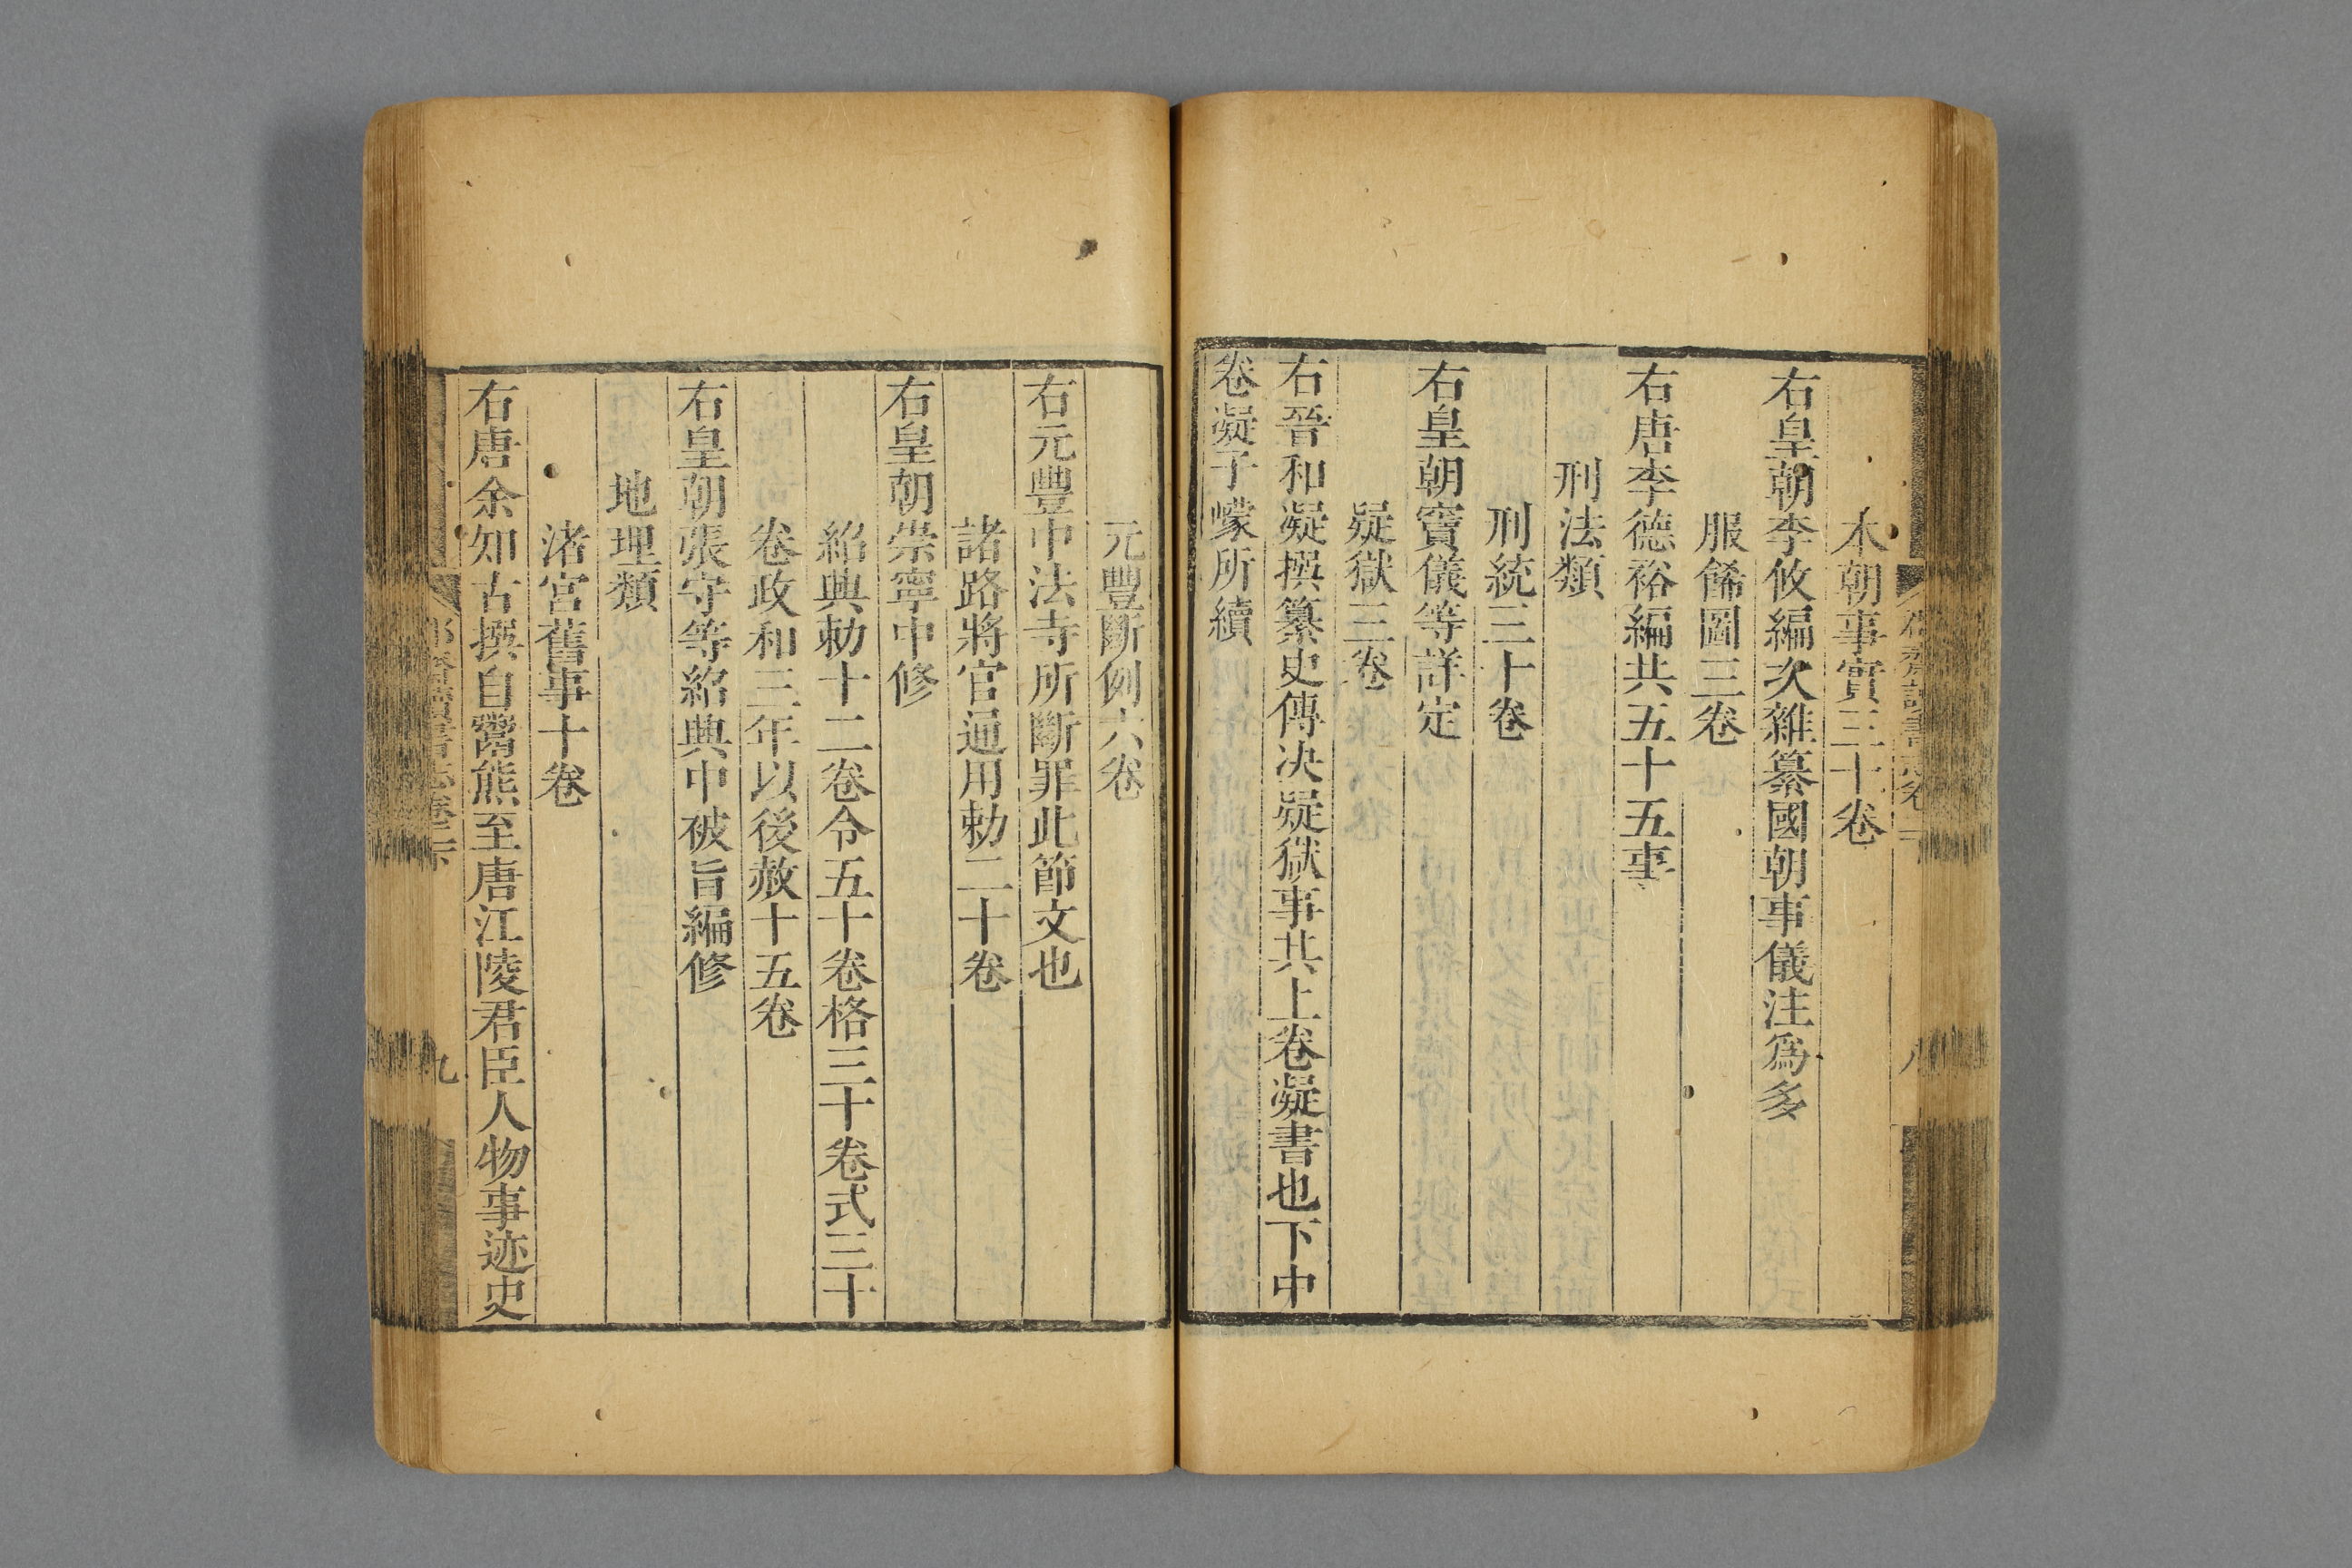 本朝事實三十卷
右皇朝李攸編次雜纂國朝事儀注爲多
服餙圖三卷
右唐李德裕編共五十五事
刑法類
刑統三十卷
右皇朝竇儀等詳定
疑獄三卷
右晉和凝撰纂史傳决疑獄事共上卷凝書也下中
卷凝子㠓所續
元豐斷例六卷
右元豐中法寺所斷罪此節文也
諸路將官通用勑二十卷
右皇朝崇寧中修
紹興勑十二卷令五十卷格三十卷式三十
卷政和三年以後赦十五卷
右皇朝張守等紹興中被旨編修
地理類
渚宮舊事十卷
右唐余知古撰自鬻熊至唐江陵君臣人物事迹史
九